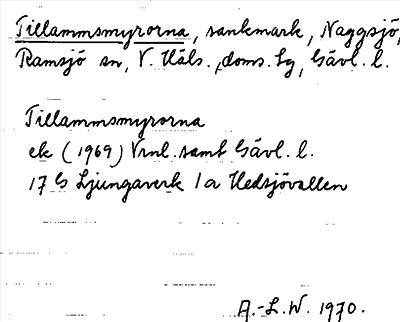 Tillammsmyrorna, sankmark, Naggsjö,
Ramsjö sn, V. Häls., doms. Lg, Gävl. l.
Tillammsmyrorna
ek (1969) Vrnl. samt Gävl. l.
17 G Ljungaverk 1 a Hedsjövallen
A.-L. W. 1970.